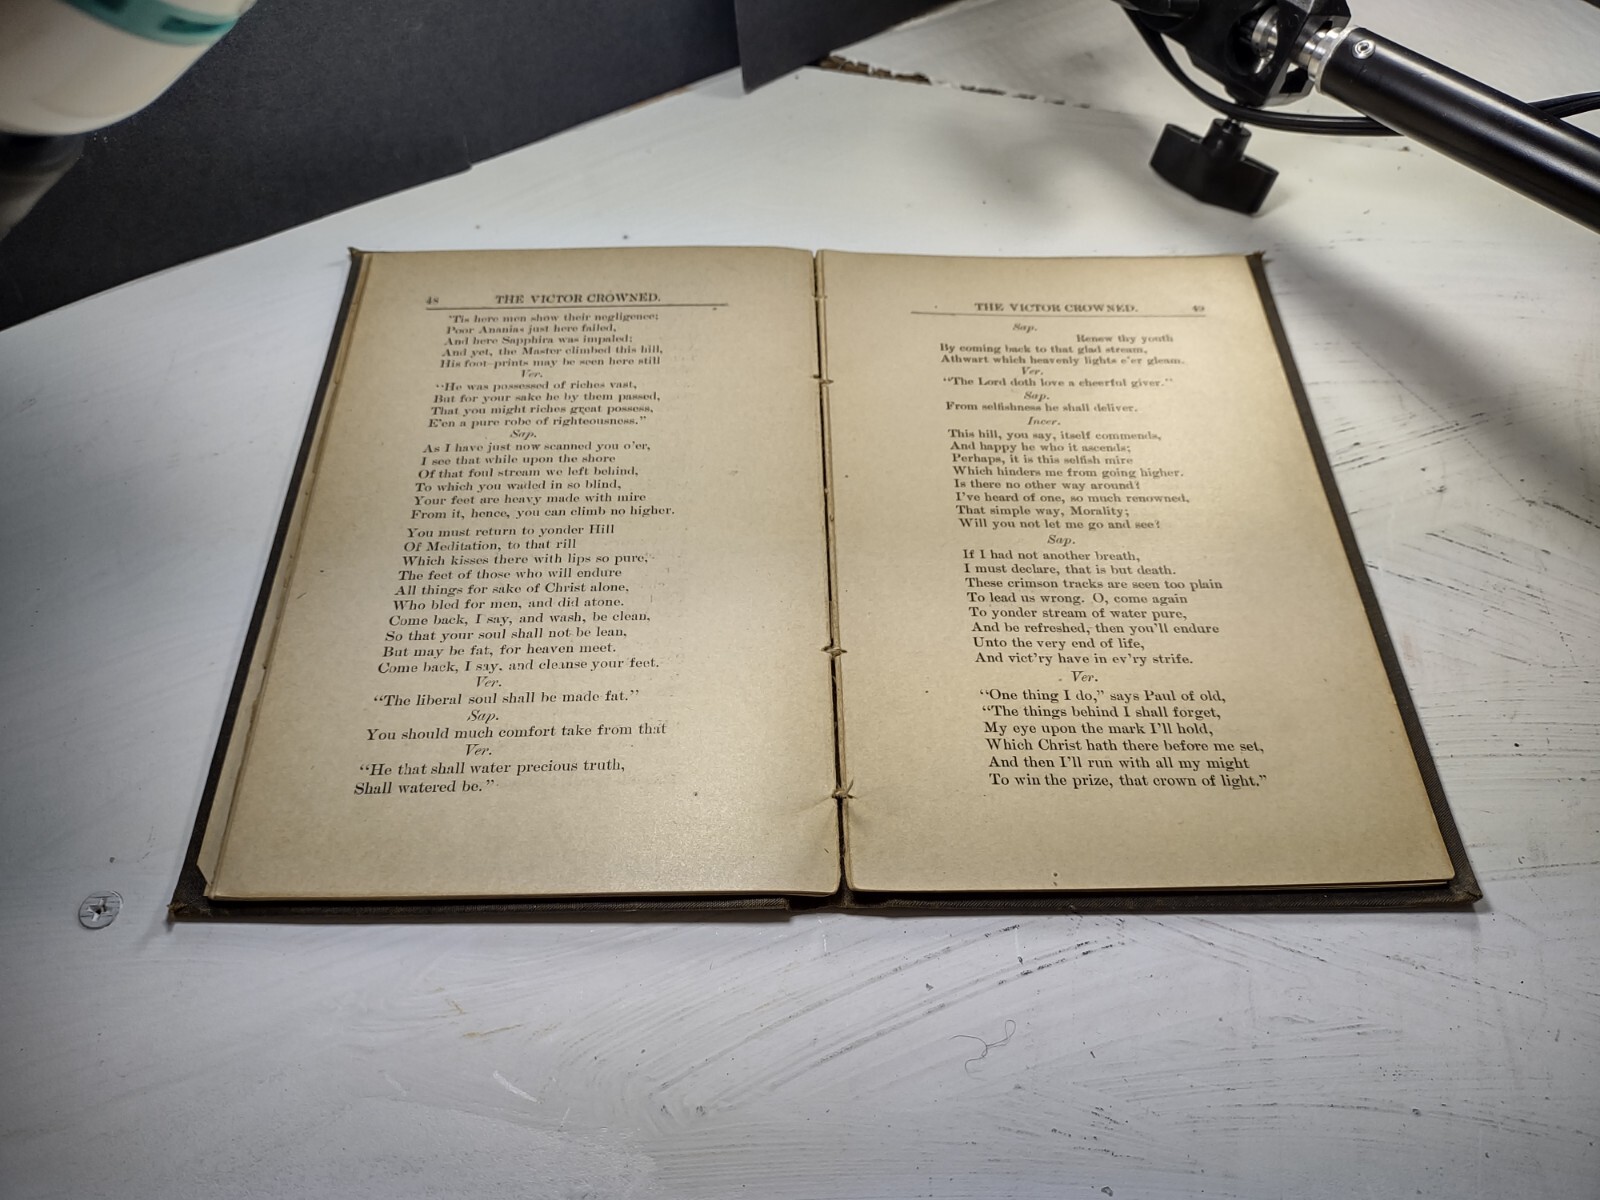 48 THE VICTOR CROWNED.
'Tis here men show their negligence;
Poor Ananias just here failed,
And here Sapphira was impaled;
And yet, the Master climbed this hill,
His foot-prints may be seen here still
Ver.
“He was possessed of riches vast,
But for your sake he by them passed,
That you might riches great possess,
E'en a pure robe of righteousness.”
Sap.
As I have just now scanned you o'er,
I see that while upon the shore
Of that foul stream we left behind,
To which you waded in so blind,
Your feet are heavy made with mire
From it, hence, you can climb no higher.
You must return to yonder Hill
Of Meditation, to that rill
Which kisses there with lips so pure,
The feet of those who will endure
All things for sake of Christ alone,
Who bled for men, and did atone.
Come back, I say, and wash, be clean,
So that your soul shall not be lean,
But may be fat, for heaven meet.
Come back, I say, and cleanse your feet.
Ver.
“The liberal soul shall be made fat.”
Sap.
You should much comfort take from that
Ver.
“He that shall water precious truth,
Shall watered be.”
THE VICTOR CROWNED. 49
Sap.
Renew thy youth
By coming back to that glad stream,
Athwart which heavenly lights e'er gleam.
Ver.
“The Lord doth love a cheerful giver.”
Sap.
From selfishness he shall deliver.
Incer.
This hill, you say, itself commends,
And happy he who it ascends;
Perhaps, it is this selfish mire
Which hinders me from going higher.
Is there no other way around?
I've heard of one, so much renowned,
That simple way, Morality;
Will you not let me go and see?
Sap.
If I had not another breath,
I must declare, that is but death.
These crimson tracks are seen too plain
To lead us wrong. O, come again
To yonder stream of water pure,
And be refreshed, then you'll endure
Unto the very end of life,
And vict'ry have in ev'ry strife.
Ver.
“One thing I do,” says Paul of old,
“The things behind I shall forget,
My eye upon the mark I'll hold,
Which Christ hath there before me set,
And then I'll run with all my might
To win the prize, that crown of light.”